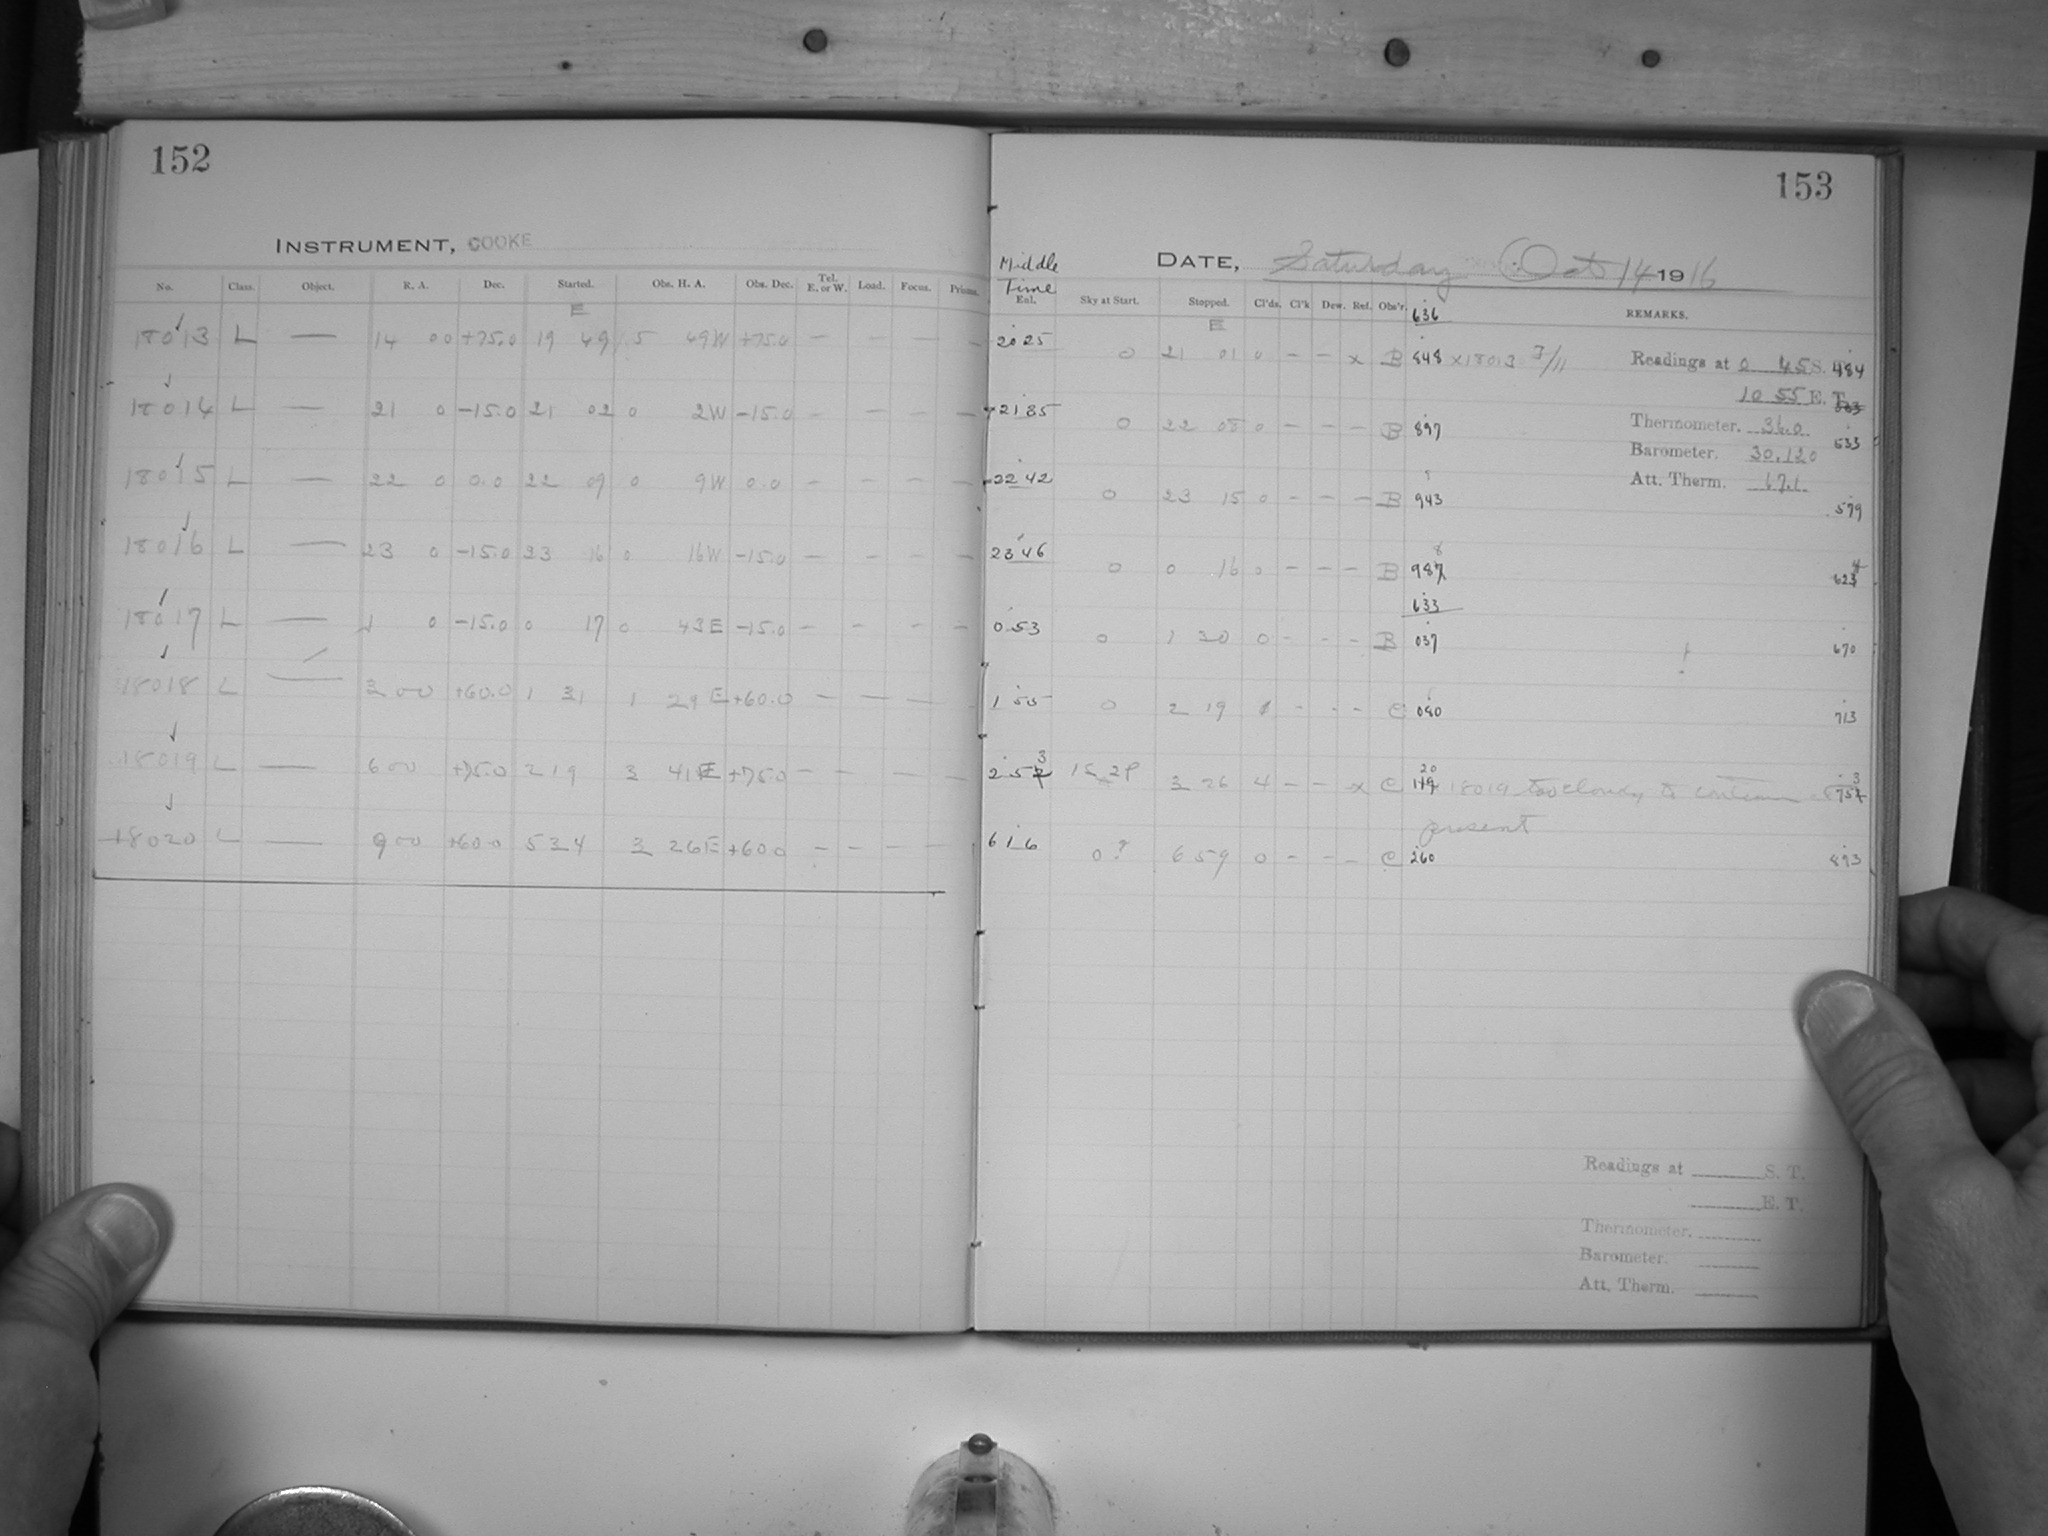 152
INSTRUMENT, COOKE
No. Class. Object. R. A. Dec. Started. Obs. H. A. Obs. Dec. Tel. E. or W. Load. Focus. Prisms.
E
18013 L — 14 00 +75.0 19 49 5 49W +75.0 — — — —
18014 L — 21 0 -15.0 21 02 0 2W -15.0 — — — —
18015 L — 22 0 0.0 22 09 0 9W 0.0 — — — —
18016 L — 23 0 -15.0 23 16 0 16W -15.0 — — — —
18017 L — 1 0 -15.0 0 17 0 43E -15.0 — — — —
18018 L — 3 00 +60.0 1 31 1 29E +60.0 — — —
18019 L — 6 00 +75.0 2 19 3 41E +75.0 — — — —
18020 L — 9 00 +60.0 5 34 3 26E +60.0 — — — —
153
DATE, Saturday Oct 14 1916
Middle Time
Exl. Sky at Start. Stopped. Cl'ds. Cl'k Dew. Red. Obs'r. REMARKS.
E 636
20 25 0 21 01 0 — — x B 848 x18013 3/11
21 35 0 22 08 0 — — — B 897
22 42 0 23 15 0 — — — B 943
23 46 0 0 16 0 — — — B 987 8
633
0 53 0 1 30 0 — — — B 037
1 55 0 2 19 1 — — — C 080
2 52 3 3 26 4 — — x C 119 20 18019 too cloudy to continue at
present
6 16 0? 6 59 0 — — — C 260
Readings at 0 45 S. T. 484
10 55 E. T.
Thermometer. 36.0 533
Barometer. 30.120
Att. Therm. 67.1
579
623 4
670
713
752 3
893
Readings at S. T.
E. T.
Thermometer.
Barometer.
Att. Therm.